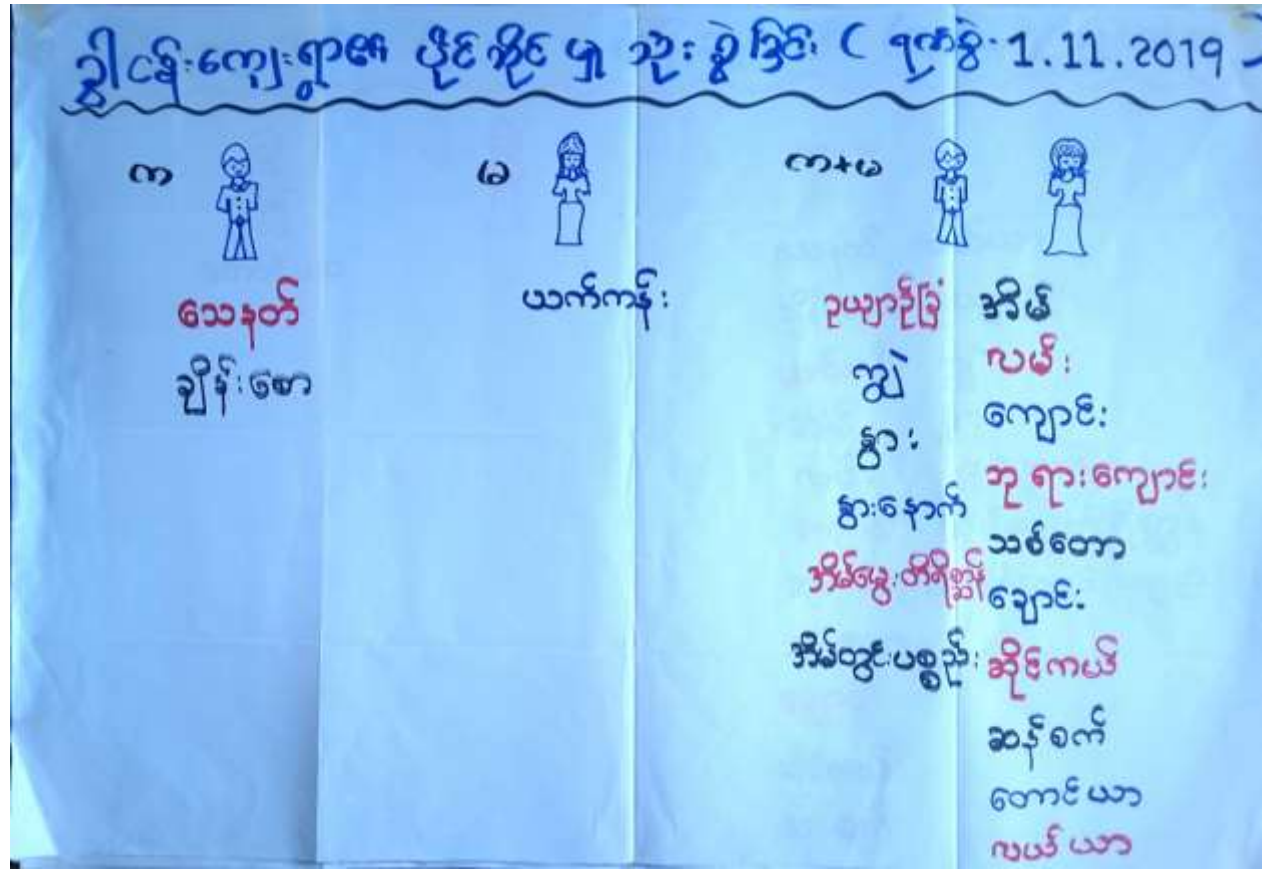 ဒွါငန်းကျေးရွာ၏ ပိုင်ဆိုင်မှု သုံးစွဲခြင်း (ရက်စွဲ-1.11.2019)
က
မ
က+မ
သေနတ်
ချိန်းစော
ယက်ကန်း
ဥယျာဉ်ခြံ
ကျွဲ
နွား
နွားနောက်
အိမ်မွေးတိရိစ္ဆာန်
အိမ်တွင်းပစ္စည်း
အိမ်
လမ်း
ကျောင်း
ဘုရားကျောင်း
သစ်တော
ချောင်း
ဆိုင်ကယ်
ဆန်စက်
တောင်ယာ
လယ်ယာ